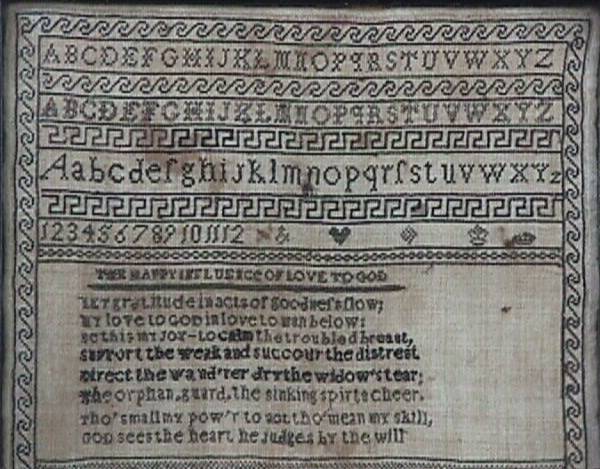 ABCDEFGHIJKLMNOPQRSTUVWXYZ
ABCDEFGHIJKLMNOPQRSTUVWXYZ
Aabcdefghijklmnopqrſstuvwxyz
123456789101112 &
THE HAPPY INFLUENCE OF LOVE TO GOD
LET gratitude in acts of goodneſs flow;
MY love to GOD in love to man below:
Be this MY JOY-to calm the troubled breast,
support the weak and succour the distrest.
Direct the wand'rer dry the widow's tear;
The orphan guard, the sinking spirts cheer.
Tho' small MY pow'r to act tho' mean MY skill,
GOD sees the heart he judges by the will